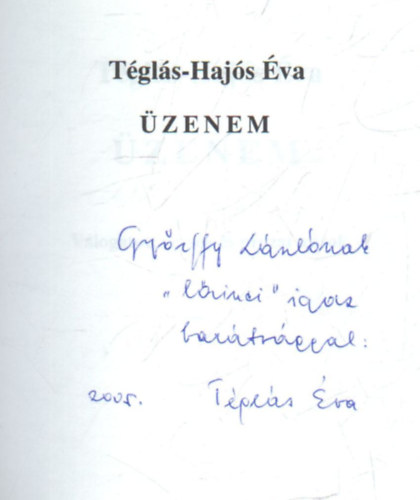 Téglás-Hajós Éva
ÜZENEM
Győrffy Lászlónak
„lőrinci” igaz
barátsággal:
2005. Téglás Éva